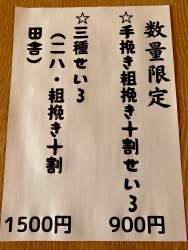 数量限定
☆手挽き粗挽き十割せいろ
900円
☆三種せいろ
(二八・粗挽き十割
田舎)
1500円